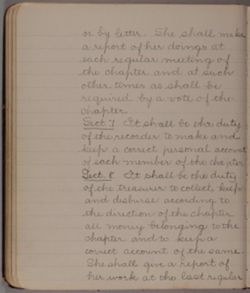 or by letter. She shall make
a report of her doings at
each regular meeting of
the chapter and at such
other times as shall be
required by a vote of the
chapter.
Sect. 7 It shall be the duty
of the recorder to make and
keep a correct personal account
of each member of the chapter
Sect. 8 It shall be the duty
of the treasurer to collect, keep
and disburse according to
the direction of the chapter
all money belonging to the
chapter and to keep a
correct account of the same.
She shall give a report of
her work at the last regular